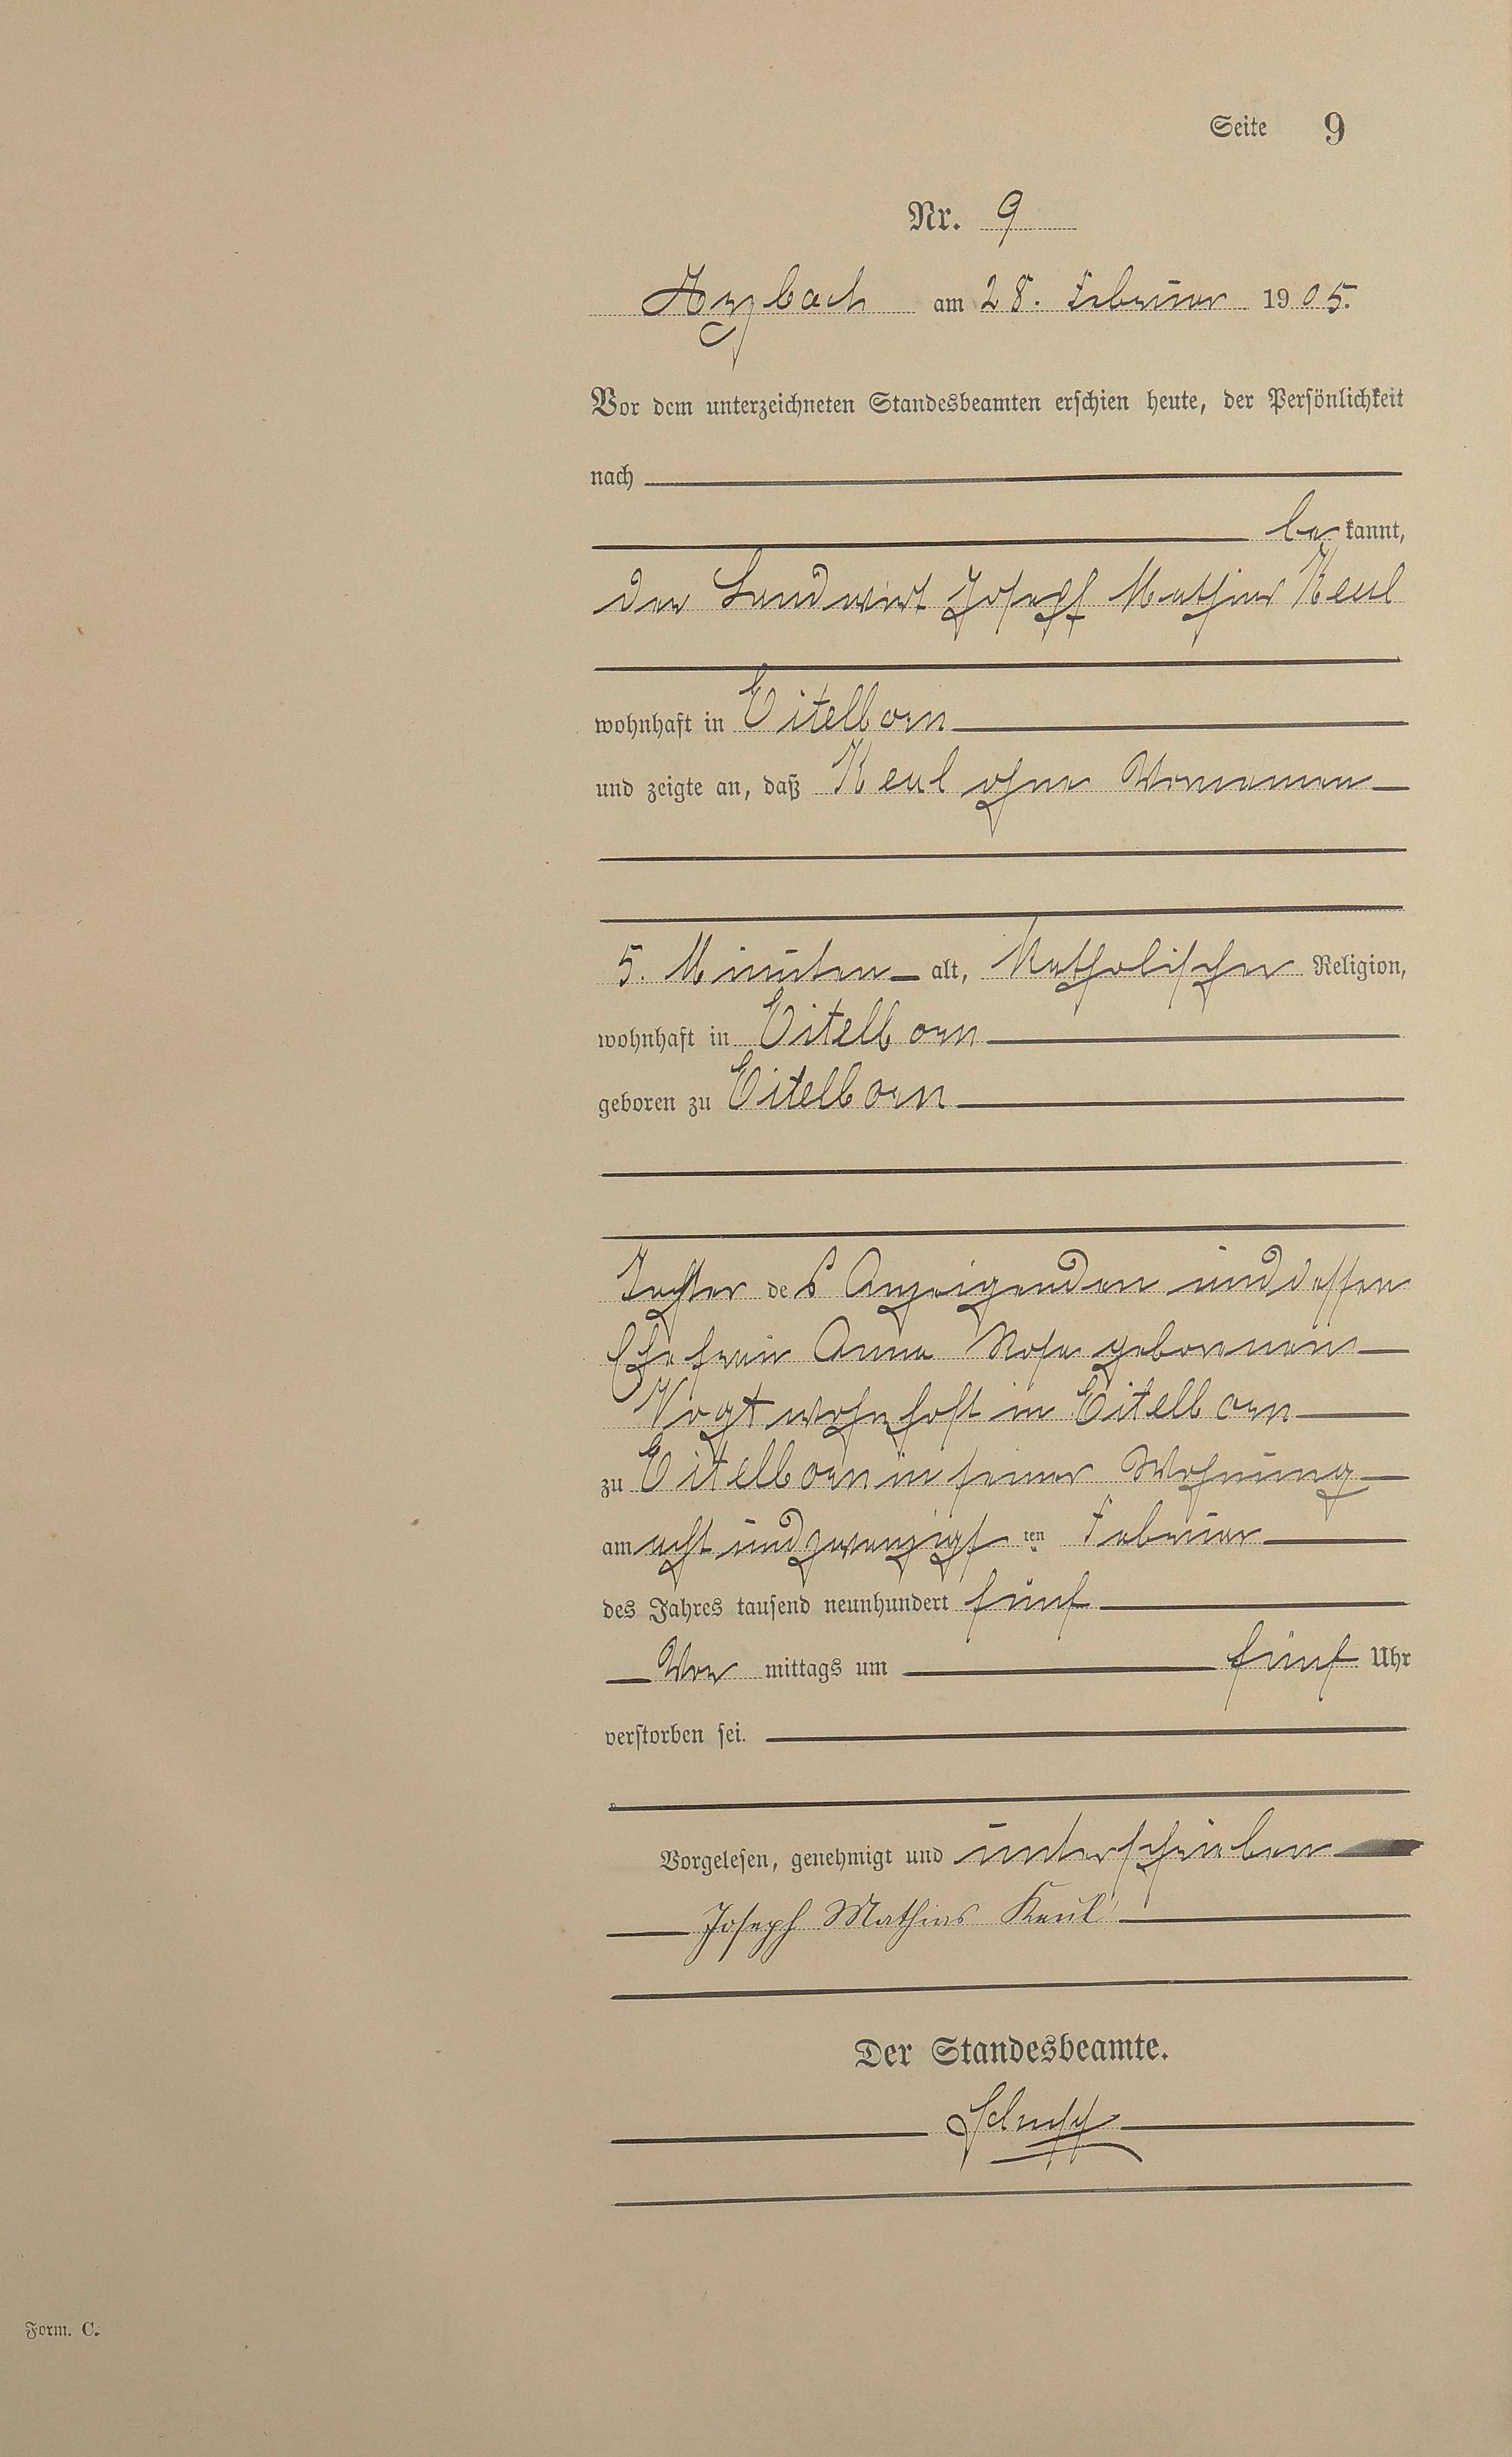 Seite 9
Nr. 9
Arzbach am 28. Februar 1905.
Vor dem unterzeichneten Standesbeamten erschien heute, der Persönlichkeit
nach
be kannt,
der Landwirt Joseph Mathias Keul
wohnhaft in Eitelborn
und zeigte an, daß Keul ohne Vornamen
5. Minuten alt, Katholischer Religion,
wohnhaft in Eitelborn
geboren zu Eitelborn
Tochter des Anzeigenden und dessen
Ehefrau Anna Rosa geborenen
Vogt wohnhaft in Eitelborn
zu Eitelborn in seiner Wohnung
am acht und zwanzigsten Februar
des Jahres tausend neunhundert fünf
Vor mittags um fünf Uhr
verstorben sei.
Vorgelesen, genehmigt und unterschrieben
Joseph Mathias Keul
Der Standesbeamte.
Form. C.